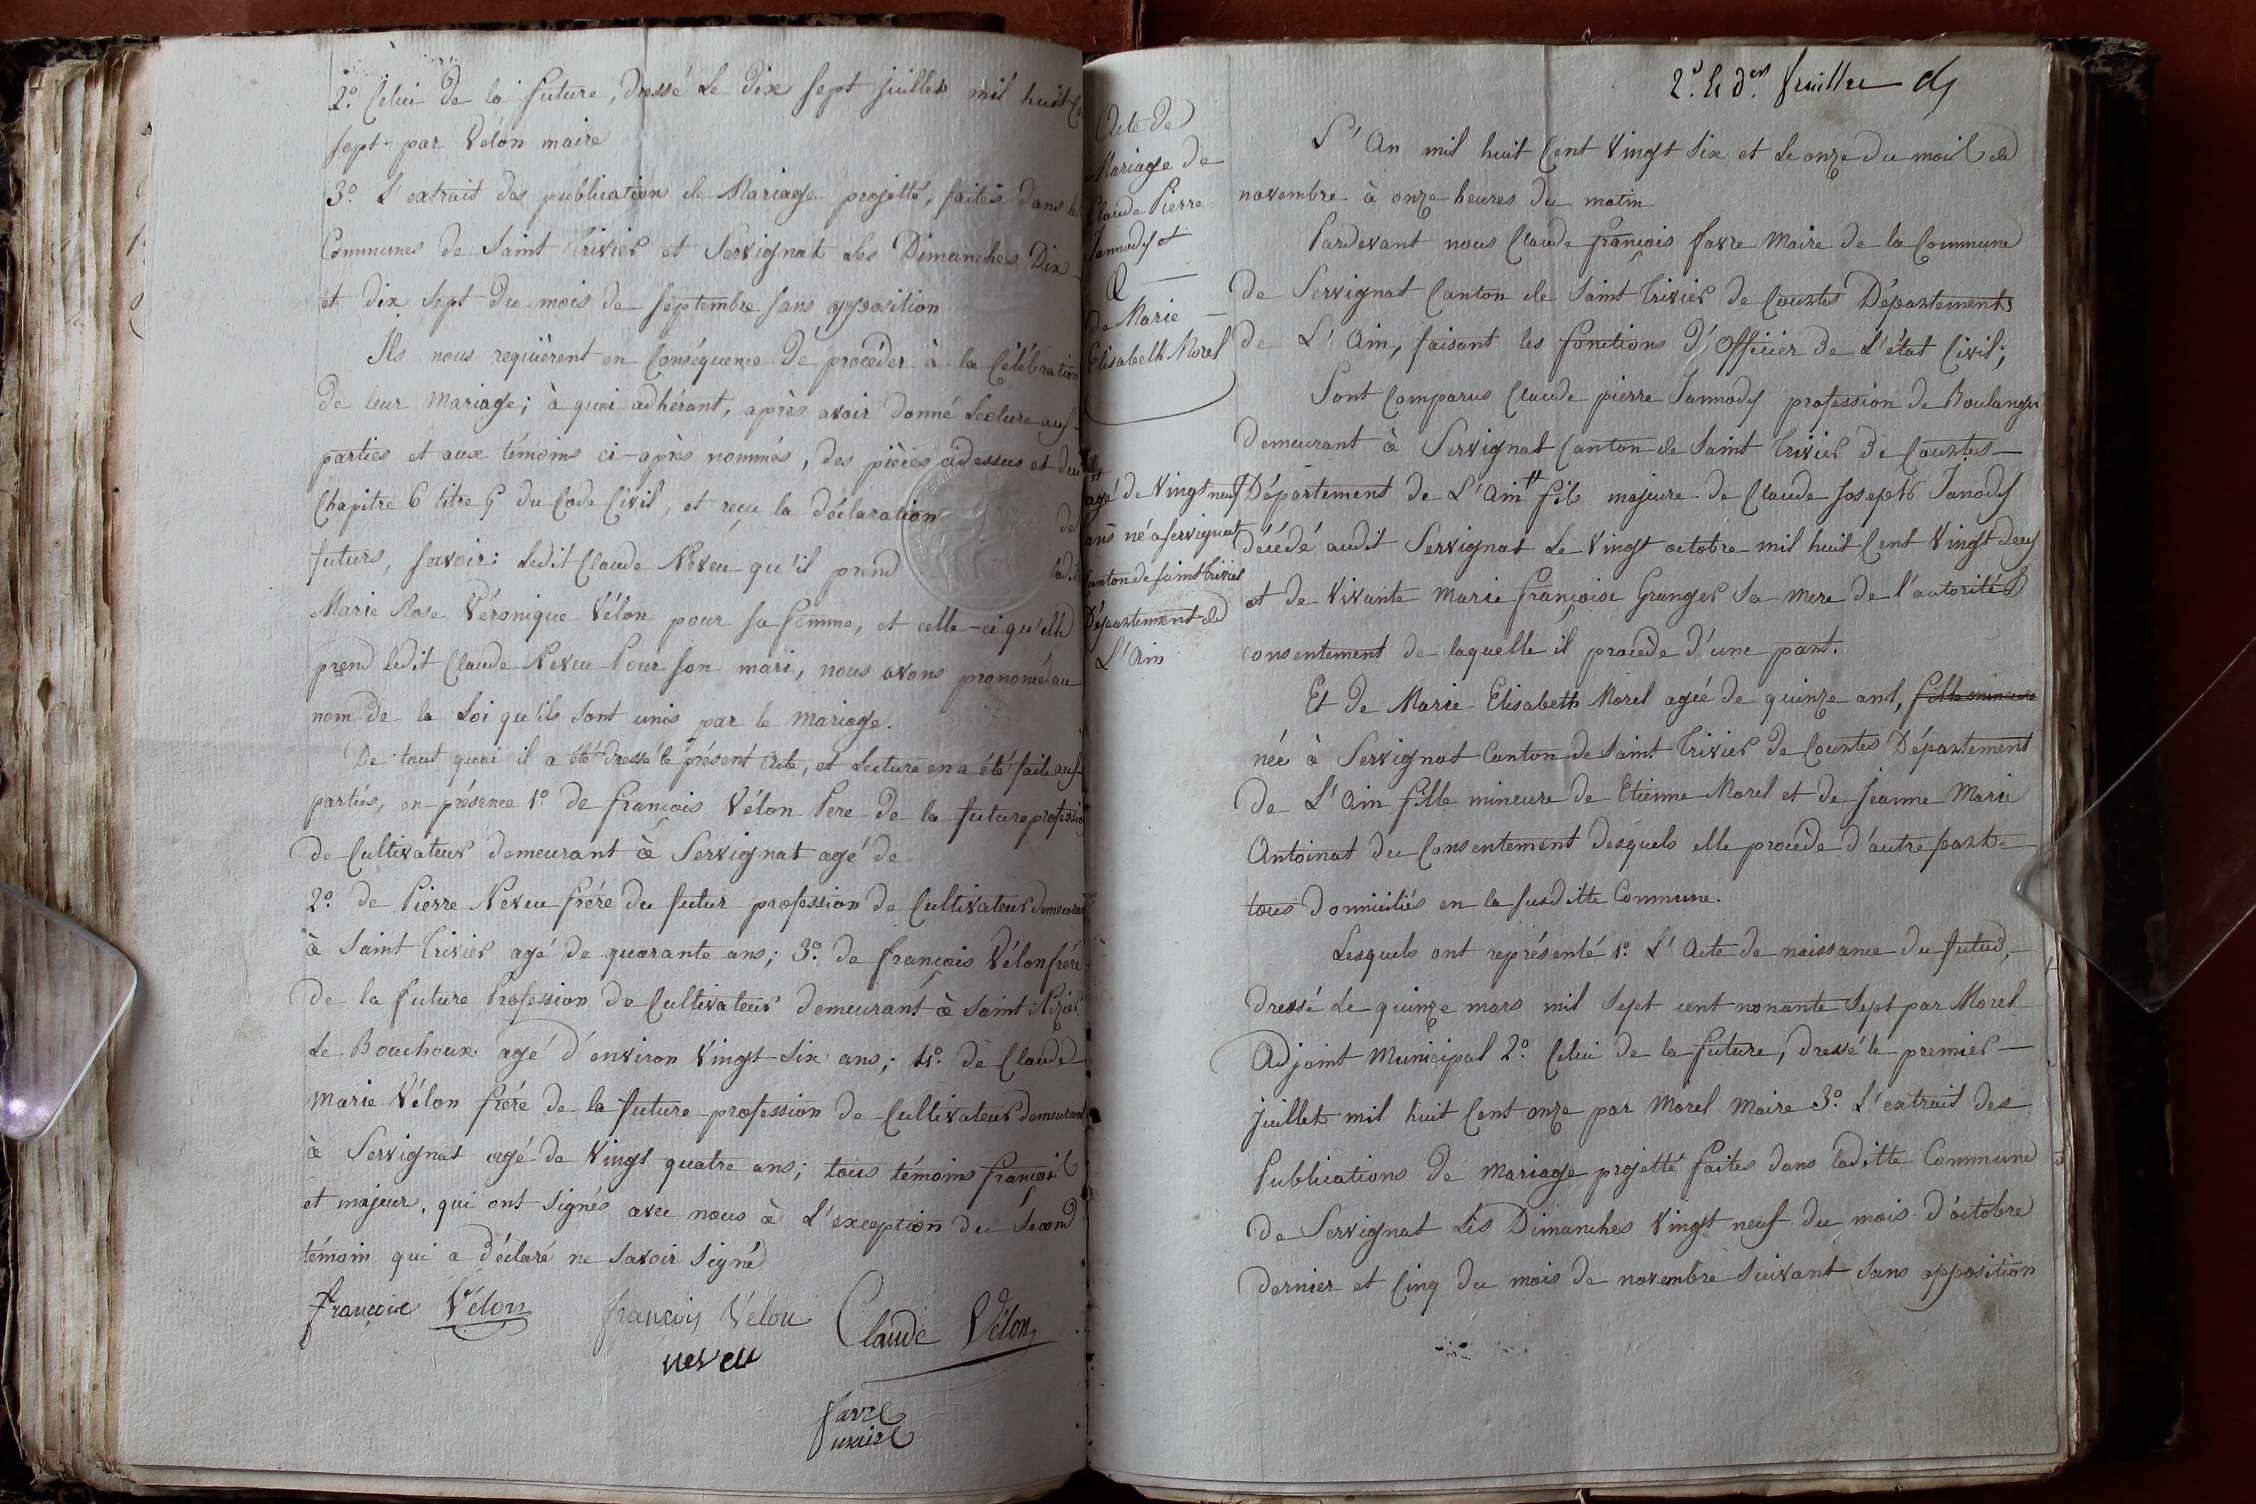 2º. Celui de la future, dressé le dix sept juillet mil huit
sept par Vélon maire
3º. L'extrait des publications de Mariage projetté, faites dans les
Communes de Saint Trivier et Servignat les Dimanches Dix
et dix sept du mois de septembre sans opposition
Ils nous requièrent en Conséquence de procéder à la Célébration
de leur mariage; à quoi adhérant, après avoir donné Lecture aux
parties et aux témoins ci-après nommés, des pièces cidessus et du
Chapitre 6 titre 5 du Code Civil, et reçu la déclaration des
futurs, savoir: Ledit Claude Neveu qu'il prend ladite
Marie Rose Véronique Vélon pour sa femme, et celle-ci qu'elle
prend ledit Claude Neveu Pour son mari, nous avons prononcé au
nom de la Loi qu'ils sont unis par le mariage.
De tout quoi il a été dressé le présent Acte, et Lecture en a été faite aux
parties, en présence 1º. de françois Vélon Pere de la future profession
de Cultivateur demeurant à Servignat agé de
2º. de Pierre Neveu frére du futur profession de Cultivateur demeurant
à Saint Trivier agé de quarante ans; 3º. de françois Vélon frére
de la future Profession de Cultivateur demeurant à Saint Nizier
Le Bouchoux agé d'environ Vingt-six ans; 4º. de Claude
Marie Vélon frére de la future profession de Cultivateur demeurant
à Servignat agé de Vingt quatre ans; tous témoins français
et majeur, qui ont signés avec nous à L'exception du second
témoin qui a déclaré ne savoir signé
françois Vélon françois Velon Claude Vélon
neveu
favre
maire
2e. & der. feuillet
Acte de
Mariage de
Claude Pierre
Jannody et
&
de Marie
Elisabeth Morel
L'An mil huit Cent Vingt six et le onze du mois de
novembre à onze heures du matin
Pardevant nous Claude françois favre Maire de la Commune
de Servignat Canton de Saint Trivier de Courtes Département
de L'Ain, faisant les fonctions d'Officier de L'état Civil;
Sont Comparus Claude pierre Jannody profession de Boulanger
demeurant à Servignat Canton de Saint Trivier de Courtes
Département de L'Ain # fils majeure de Claude Joseph Janody
décédé audit Servignat le Vingt octobre mil huit Cent Vingt deux
et de Vivante Marie françoise Granger sa mere de l'autorité &
consentement de laquelle il procède d'une part.
# agé de Vingt neuf
ans né a servignat
Canton de saint trivier
Département de
L'Ain
Et de Marie Elisabeth Morel agée de quinze ans, fille mineure
née à Servignat Canton de Saint Trivier de Courtes Département
de L'Ain fille mineure de Etienne Morel et de Jeanne Marie
Antoinat du Consentement desquels elle procède d'autre part
tous domiciliés en la susditte Commune.
Lesquels ont représenté 1º. L'Acte de naissance du futur,
dressé Le quinze mars mil sept cent nonante sept par Morel
Adjoint Municipal 2º. Celui de la future, dressé le premier
juillet mil huit Cent onze par Morel Maire 3º. L'extrait des
Publications de Mariage projetté faites dans laditte Commune
de Servignat Les Dimanches Vingt neuf du mois d'octobre
dernier et Cinq du mois de novembre suivant sans opposition